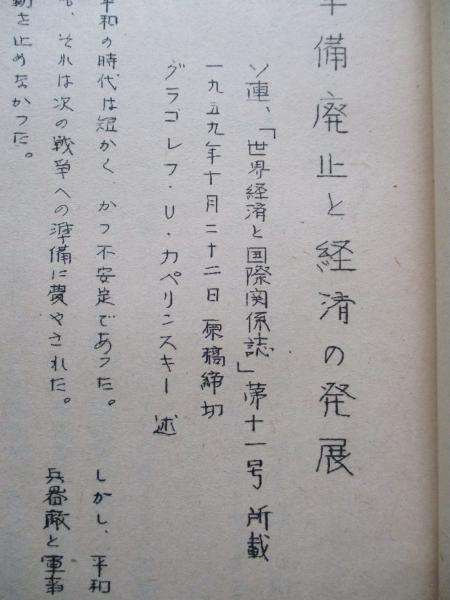 備廃止と経済の発展
ソ連、「世界経済と国際関係誌」第十一号 所載
一九五九年十月二十二日 原稿締切
グラゴレフ・U・カペリンスキー 述
平和の時代は短かく、かつ不安定であつた。 しかし、平和
、それは次の戦争への準備に費やされた。 兵器敵と軍事
を止めなかつた。